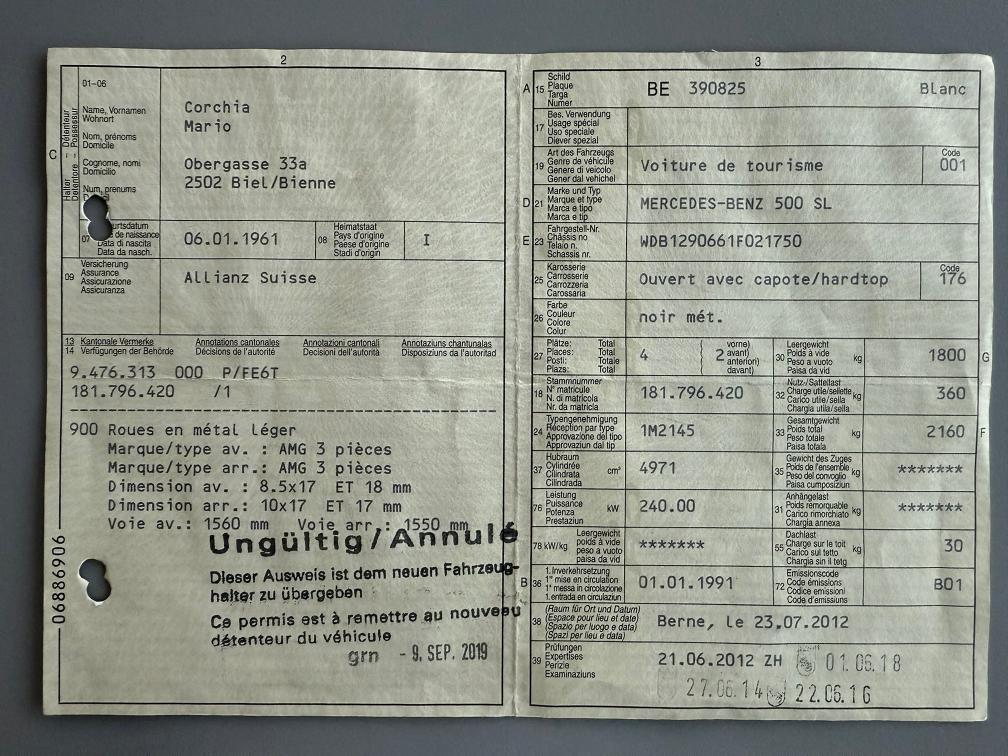 2
01-06
Halter Détenteur
Detentore Possessur
Name, Vornamen
Wohnort
Nom, prénoms
Domicile
Cognome, nomi
Domicilio
Num, prenums
C
Corchia
Mario
Obergasse 33a
2502 Biel/Bienne
07
de naissance
Data di nascita
Data da nasch.
06.01.1961
08
Heimatstaat
Pays d'origine
Paese d'origine
Stadi d'origin
I
09
Versicherung
Assurance
Assicurazione
Assicuranza
Allianz Suisse
13 Kantonale Vermerke Annotations cantonales Annotazioni cantonali Annotaziuns chantunalas
14 Verfügungen der Behörde Décisions de l'autorité Decisioni dell'autorità Disposiziuns da l'autoritad
9.476.313 000 P/FE6T
181.796.420 /1
900 Roues en métal léger
Marque/type av. : AMG 3 pièces
Marque/type arr.: AMG 3 pièces
Dimension av. : 8.5x17 ET 18 mm
Dimension arr.: 10x17 ET 17 mm
Voie av.: 1560 mm Voie arr.: 1550 mm
Ungültig/Annulé
Dieser Ausweis ist dem neuen Fahrzeug-
halter zu übergeben
Ce permis est à remettre au nouveau
détenteur du véhicule
grn - 9. SEP. 2019
06886906
3
A 15
Schild
Plaque
Targa
Numer
BE 390825 Blanc
17
Bes. Verwendung
Usage spécial
Uso speciale
Diever spezial
19
Art des Fahrzeugs
Genre de véhicule
Genere di veicolo
Gener dal vehichel
Voiture de tourisme
Code
001
D 21
Marke und Typ
Marque et type
Marca e tipo
Marca e tip
MERCEDES-BENZ 500 SL
E 23
Fahrgestell-Nr.
Châssis no
Telaio n.
Schassis nr.
WDB1290661F021750
25
Karosserie
Carrosserie
Carrozzeria
Carossaria
Ouvert avec capote/hardtop
Code
176
26
Farbe
Couleur
Colore
Colur
noir mét.
27
Plätze: Total
Places: Total
Posti: Totale
Plazs: Total
4 ( 2
vorne)
avant)
anteriori)
davant)
30
Leergewicht
Poids à vide
Peso a vuoto
Paisa da vid
kg
1800
G
18
Stammnummer
N° matricule
N. di matricola
Nr. da matricla
181.796.420
32
Nutz-/Sattellast
Charge utile/sellette
Carico utile/sella
Chargia utila/sella
kg
360
24
Typengenehmigung
Réception par type
Approvazione del tipo
Approvaziun dal tip
1M2145
33
Gesamtgewicht
Poids total
Peso totale
Paisa totala
kg
2160
F
37
Hubraum
Cylindrée
Cilindrata
Cilindrada
cm³
4971
35
Gewicht des Zuges
Poids de l'ensemble
Peso del convoglio
Paisa cumposiziun
kg
*******
76
Leistung
Puissance
Potenza
Prestaziun
kW
240.00
31
Anhängelast
Poids remorquable
Carico rimorchiato
Chargia annexa
kg
*******
78 kW/kg
Leergewicht
poids à vide
peso a vuoto
paisa da vid
*******
55
Dachlast
Charge sur le toit
Carico sul tetto
Chargia sin il tetg
kg
30
B 36
1. Inverkehrsetzung
1re mise en circulation
1a messa in circolazione
1. entrada en circulaziun
01.01.1991
72
Emissionscode
Code émissions
Codice emissioni
Code d'emissiuns
B01
38
(Raum für Ort und Datum)
(Espace pour lieu et date)
(Spazio per luogo e data)
(Spazi per lieu e data)
Berne, le 23.07.2012
39
Prüfungen
Expertises
Perizie
Examinaziuns
21.06.2012 ZH 01.06.18
27.06.14 22.06.16